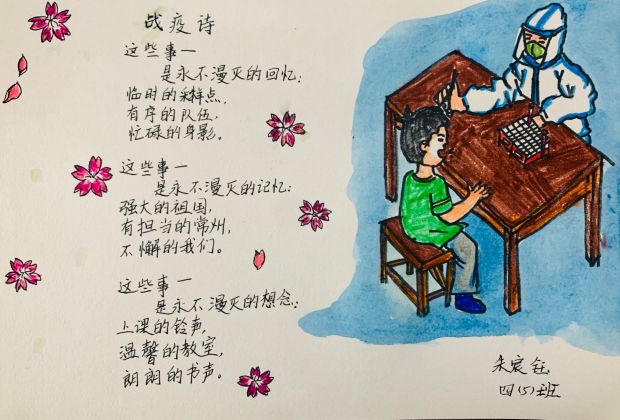 战疫诗
这些事一
是永不漫灭的回忆:
临时的采样点,
有序的队伍,
忙碌的身影。
这些事一
是永不漫灭的记忆:
强大的祖国,
有担当的常州,
不懈的我们。
这些事一
是永不漫灭的想念:
上课的铃声,
温馨的教室,
朗朗的书声。
朱宸钰
四(5)班